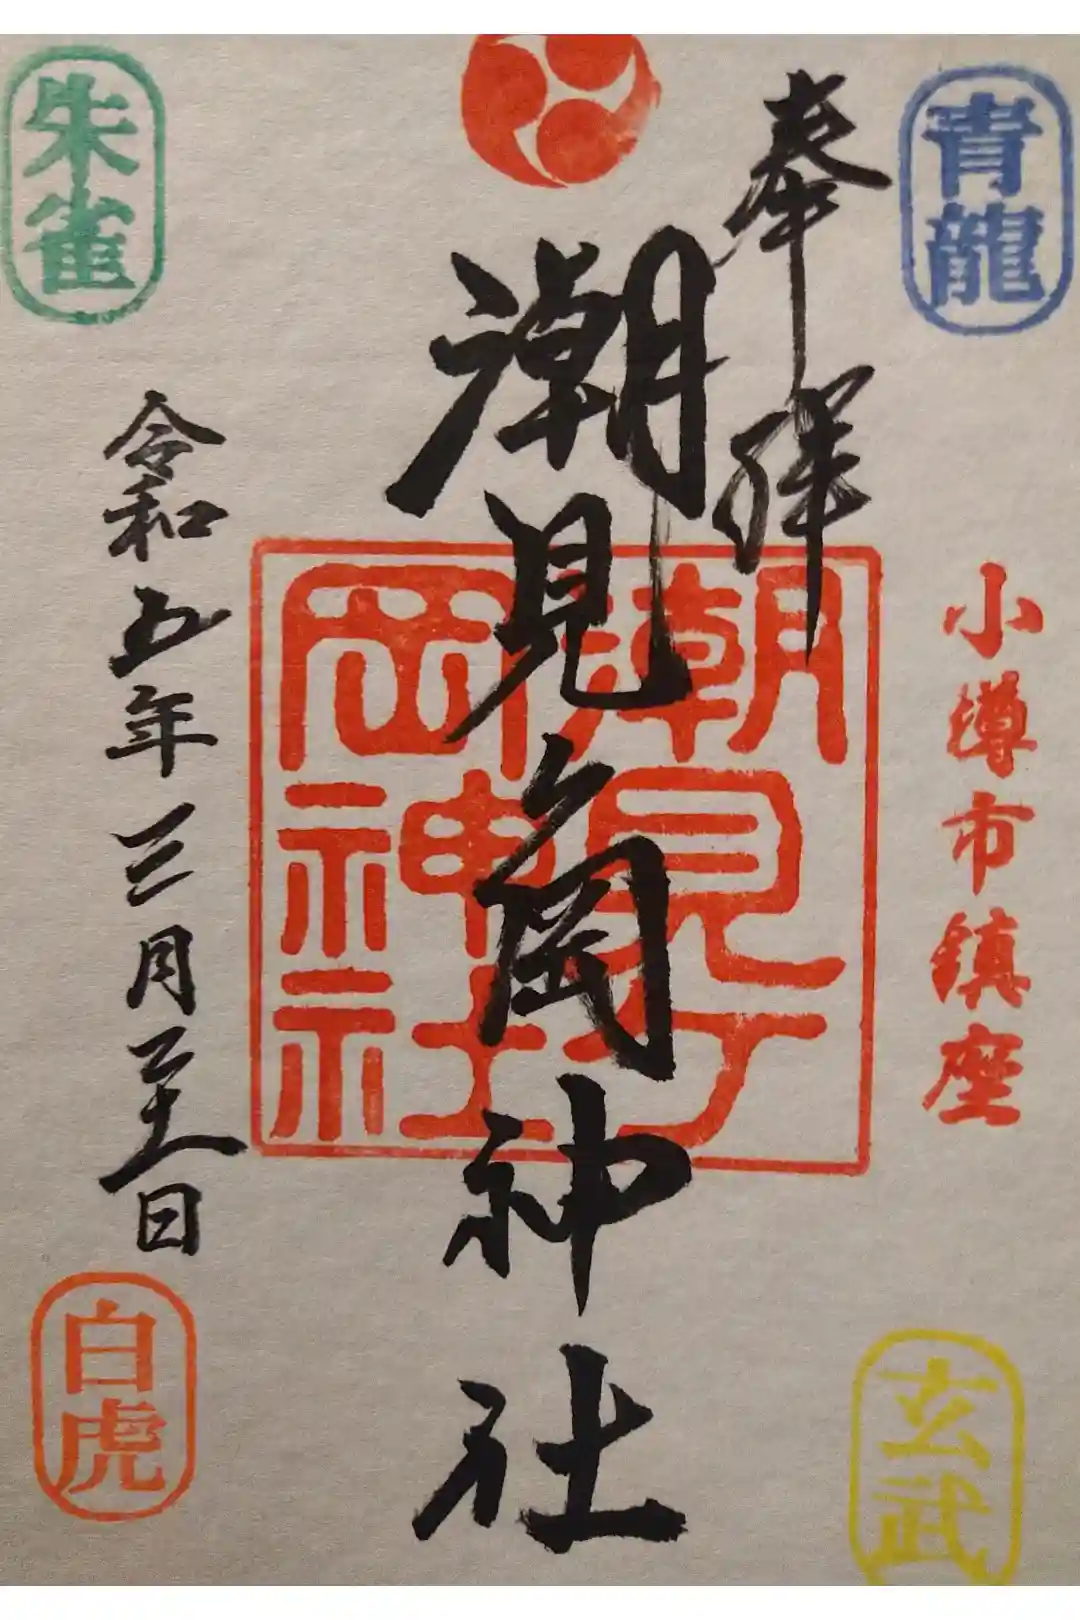 青龍
小樽市鎮座
奉拝
潮見ヶ岡神社
潮見ヶ
岡神社
令和五年三月二十一日
朱雀
白虎
玄武